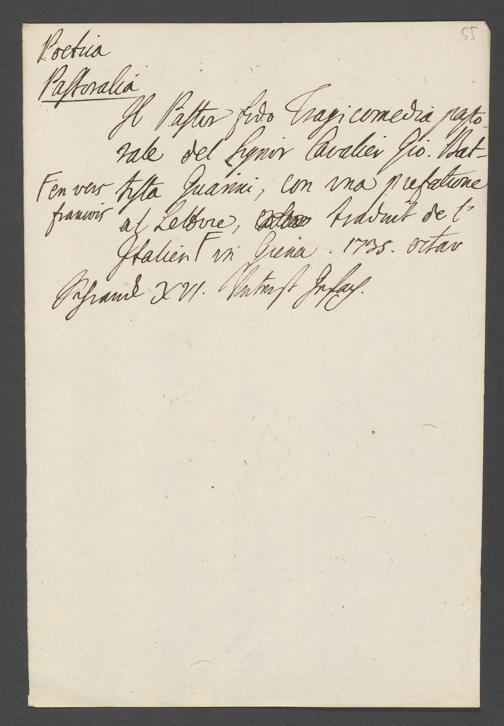 55
Poetica
Pastoralia
Il Pastor fido Tragicomedia pasto-
rale del Signor Cavalier Gio. Bat-
tista Guarini, con una prefatione
al Lettore, traduit de l'
Italien Γ in
Γ en vers
francois
1735. octav
XVI.